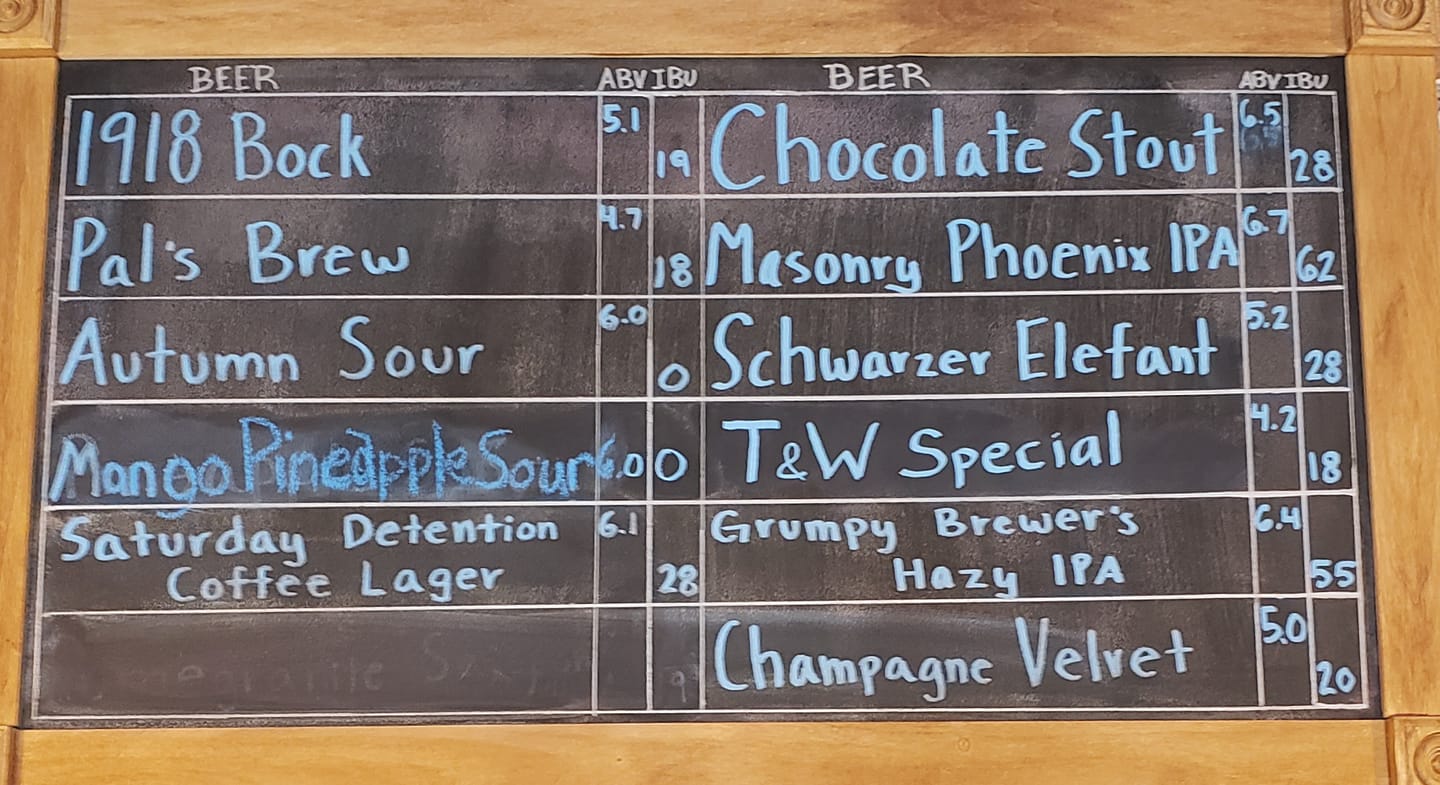 BEER ABV IBU BEER ABV IBU
1918 Bock 5.1 19 Chocolate Stout 6.5 28
Pal's Brew 4.7 18 Masonry Phoenix IPA 6.7 62
Autumn Sour 6.0 0 Schwarzer Elefant 5.2 28
Mango Pineapple Sour 6.0 0 T&W Special 4.2 18
Saturday Detention 6.1 Grumpy Brewer's 6.4
Coffee Lager 28 Hazy IPA 55
Champagne Velvet 5.0 20